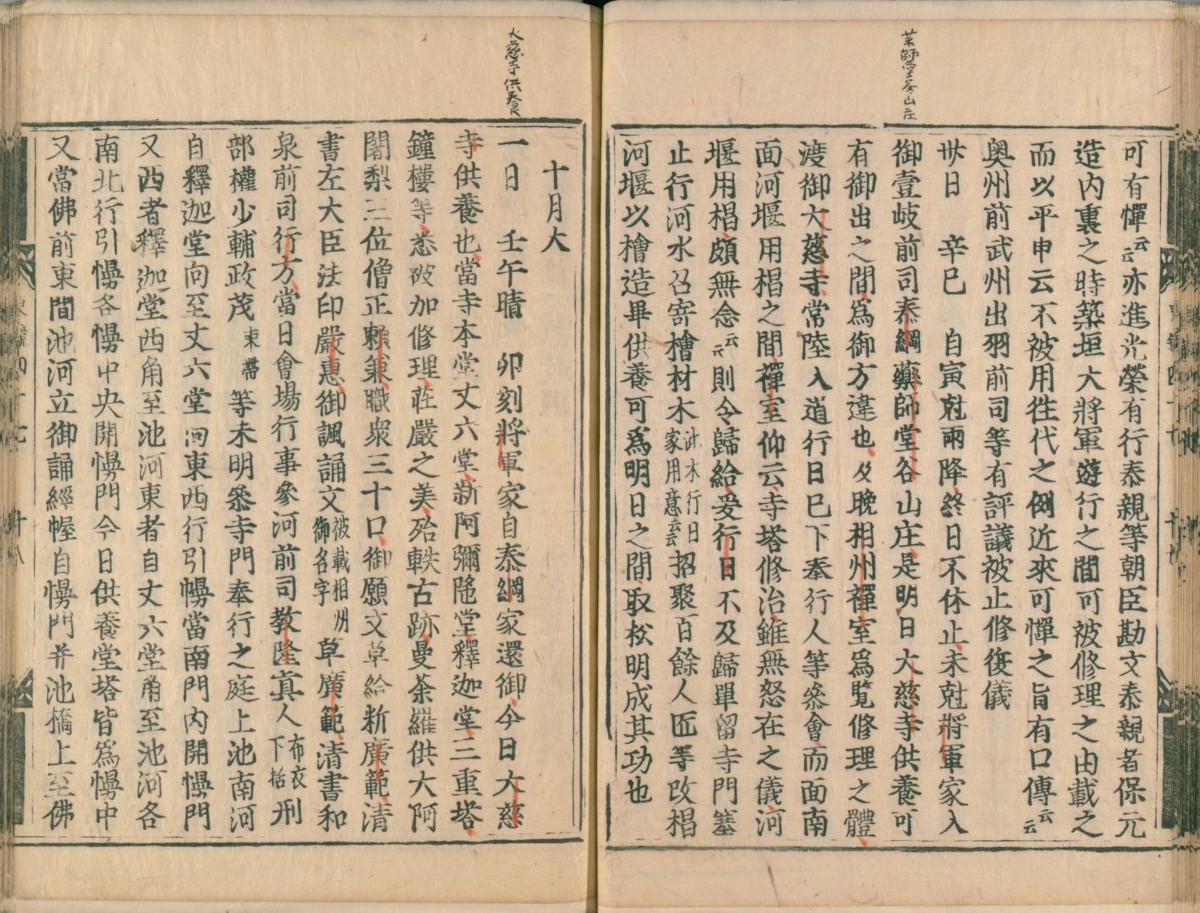 薬師堂谷山庄
可有憚云云亦進光榮有行泰親等朝臣勘文泰親者保元
造内裏之時築垣大將軍遊行之間可被修理之由載之
而以平申云不被用往代之例近來可憚之旨有口傳云云
奥州前武州出羽前司等有評議被止修復儀
卅日　辛巳　自寅尅雨降終日不休止未尅將軍家入
御壹岐前司泰綱藥師堂谷山庄是明日大慈寺供養可
有御出之間爲御方違也及晩相州禪室爲覧修理之體
渡御大慈寺常陸入道行日巳下奉行人等參會而面南
面河堰用椙之間禪室仰云寺塔修治雖無怒在之儀河
堰用椙頗無念云云則令歸給爰行日不及歸單留寺門塞
止行河水召寄檜材木此木行日家用意云云招聚百餘人匠等改椙
河堰以檜造畢供養可爲明日之間取松明成其功也
大慈寺供養
十月大
一日　壬午晴　卯刻將軍家自泰綱家還御今日大慈
寺供養也當寺本堂丈六堂新阿彌陀堂釋迦堂三重塔
鐘樓等悉被加修理莊嚴之美殆軼古跡曼荼羅供大阿
闍梨三位僧正頼兼職衆三十口御願文草給料廣範清
書左大臣法印嚴惠御諷誦文被載相州御名字草廣範清書和
泉前司行方當日會場行事參河前司教隆真人布衣下括刑
部權少輔政茂束帶等未明參寺門奉行之庭上池南河
自釋迦堂向至丈六堂洄東西行引幔當南門内開幔門
又西者釋迦堂西角至池河東者自丈六堂角至池河各
南北行引幔各幔中央開幔門今日供養堂塔皆爲幔中
又當佛前東間池河立御誦經幄自幔門并池橋上至佛
十八